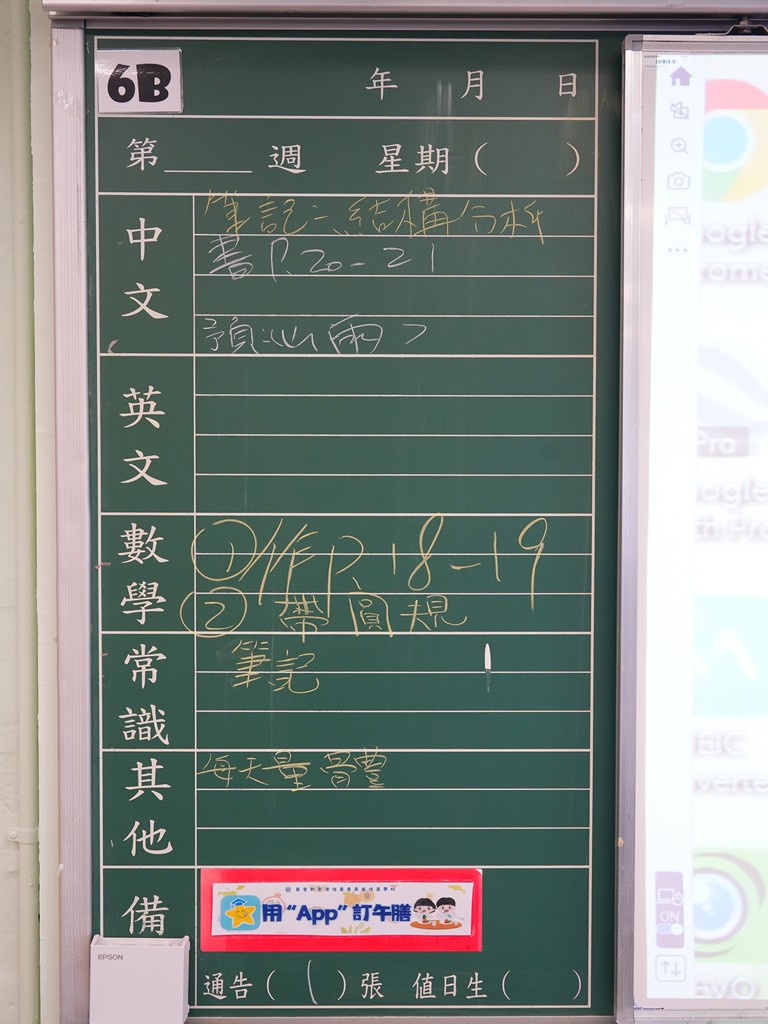 6B
年 月 日
第____週 星期( )
中文
筆記:結構分析
書P.20-21
英文
數學
①作P.18-19
②帶圓規
常識
筆記
其他
每天量
備
用“App”訂午膳
EPSON
通告( 1 )張 值日生( )
Pro
ON